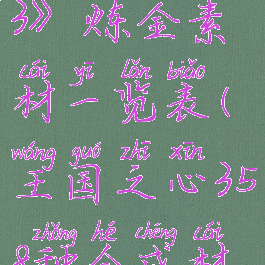 3》炼金素
cái yī lǎn biǎo
材一览表(
wáng guó zhī xīn
王国之心35
zhǒng hé chéng cái
8种合成材